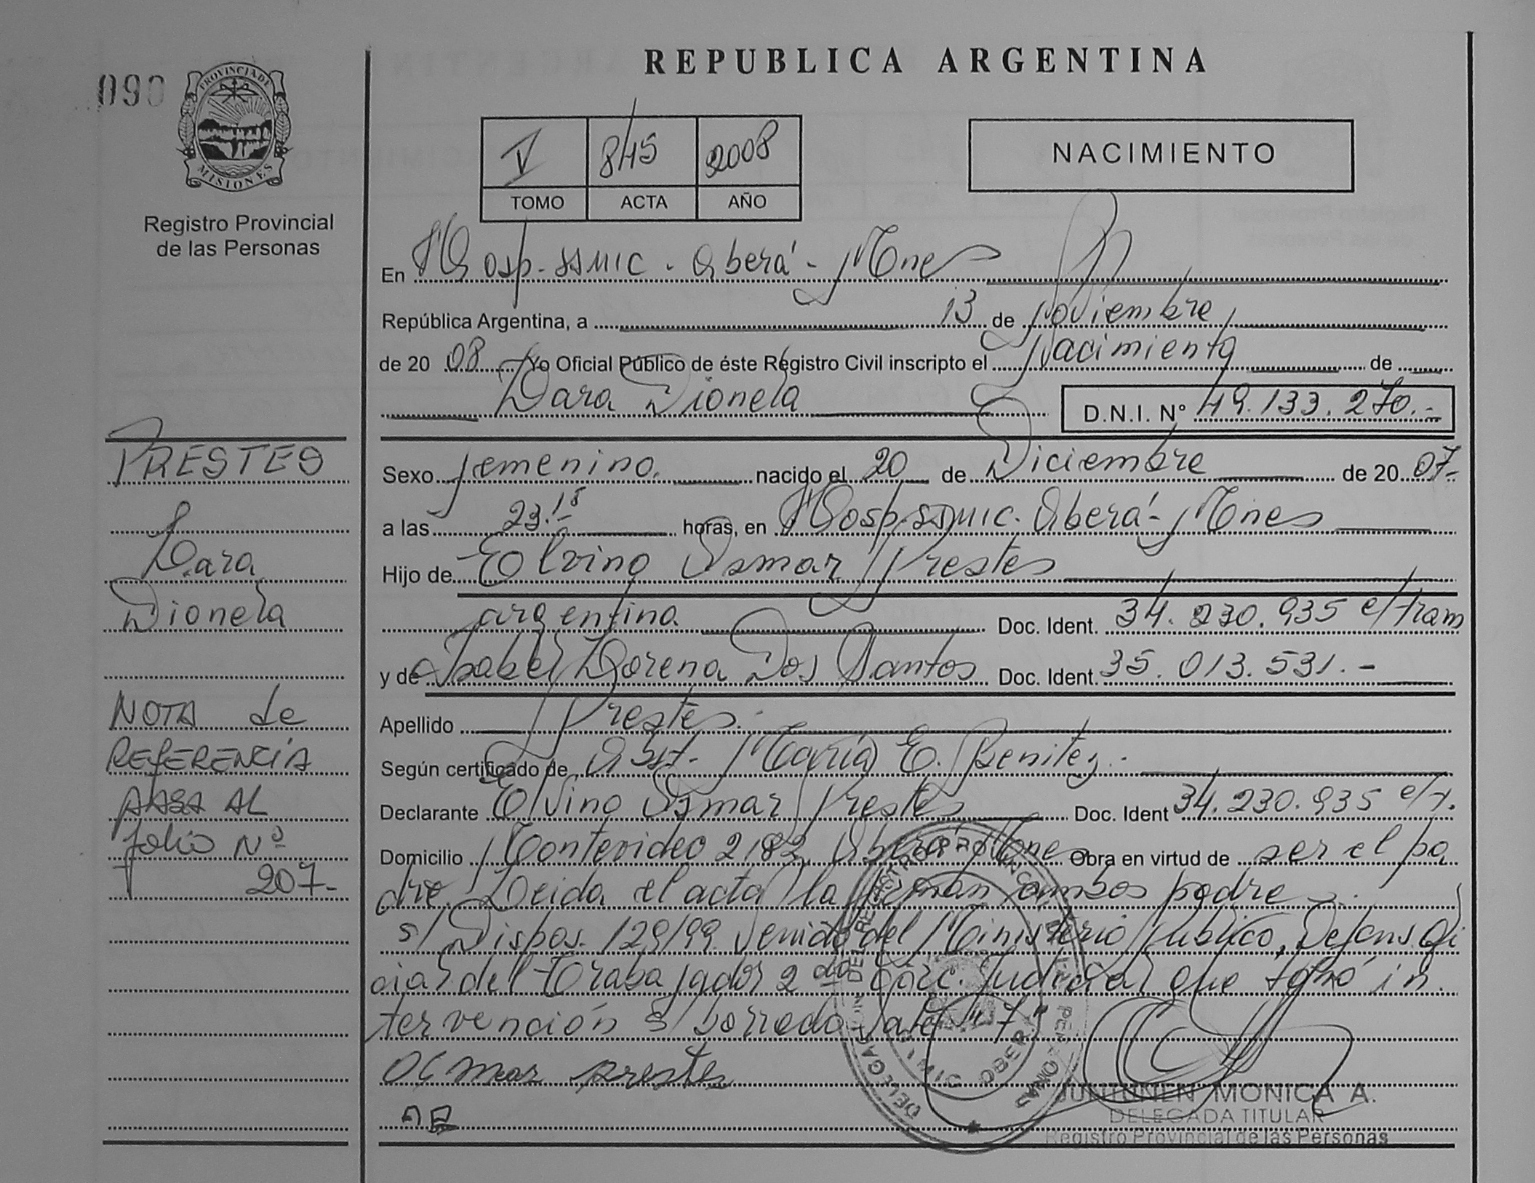 REPUBLICA ARGENTINA
090
PROVINCIA DE
MISIONES
Registro Provincial
de las Personas
V 845 2008
TOMO ACTA AÑO
NACIMIENTO
En Hosp. SSMIC. Oberá - Mnes
República Argentina, a 13 de Noviembre
de 20 08 Yo Oficial Público de éste Registro Civil inscripto el Nacimiento de
Lara Dionela D.N.I. N° 49.133.270.-
PRESTES
Lara
Dionela
NOTA de
REFERENCIA
PASA AL
folio Nº
207-
Sexo femenino. nacido el 20 de Diciembre de 20 07-
a las 23.15 horas, en Hosp. SSMIC. Oberá - Mnes
Hijo de Elvino Osmar Prestes
argentina Doc. Ident. 34.230.935 e/tram
y de Isabel Lorena Dos Santos Doc. Ident. 35.013.531.-
Apellido Prestes.-
Según certificado de Obst. María E. Benitez.-
Declarante Elvino Osmar Prestes Doc. Ident 34.230.935 e/t.
Domicilio Montevideo 2182, Oberá Mnes Obra en virtud de ser el pa
dre. Leida el acta la firman ambos padre
s/ Dispos. 129/99 venido del Ministerio Publico, Defens Ofi
cial del Trabajador 2 da Circ. Judicial que tomó in
tervención s borrado vale "7"
Osmar prestes
DELEGACION DEL REGISTRO PROVINCIAL DE LAS PERSONAS
CIVIL OBERA
JUNTUNEN MONICA A.
DELEGADA TITULAR
Registro Provincial de las Personas